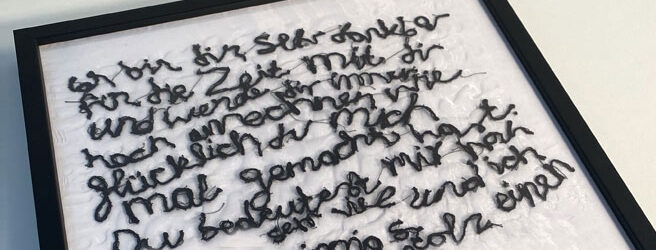 Ich bin dir sehr dankbar
für die Zeit mit dir
und werde dir immer
hoch anrechnen wie
glücklich du mich
mal gemacht hast.
Du bedeutest mir noch
sehr viel und ich
einen